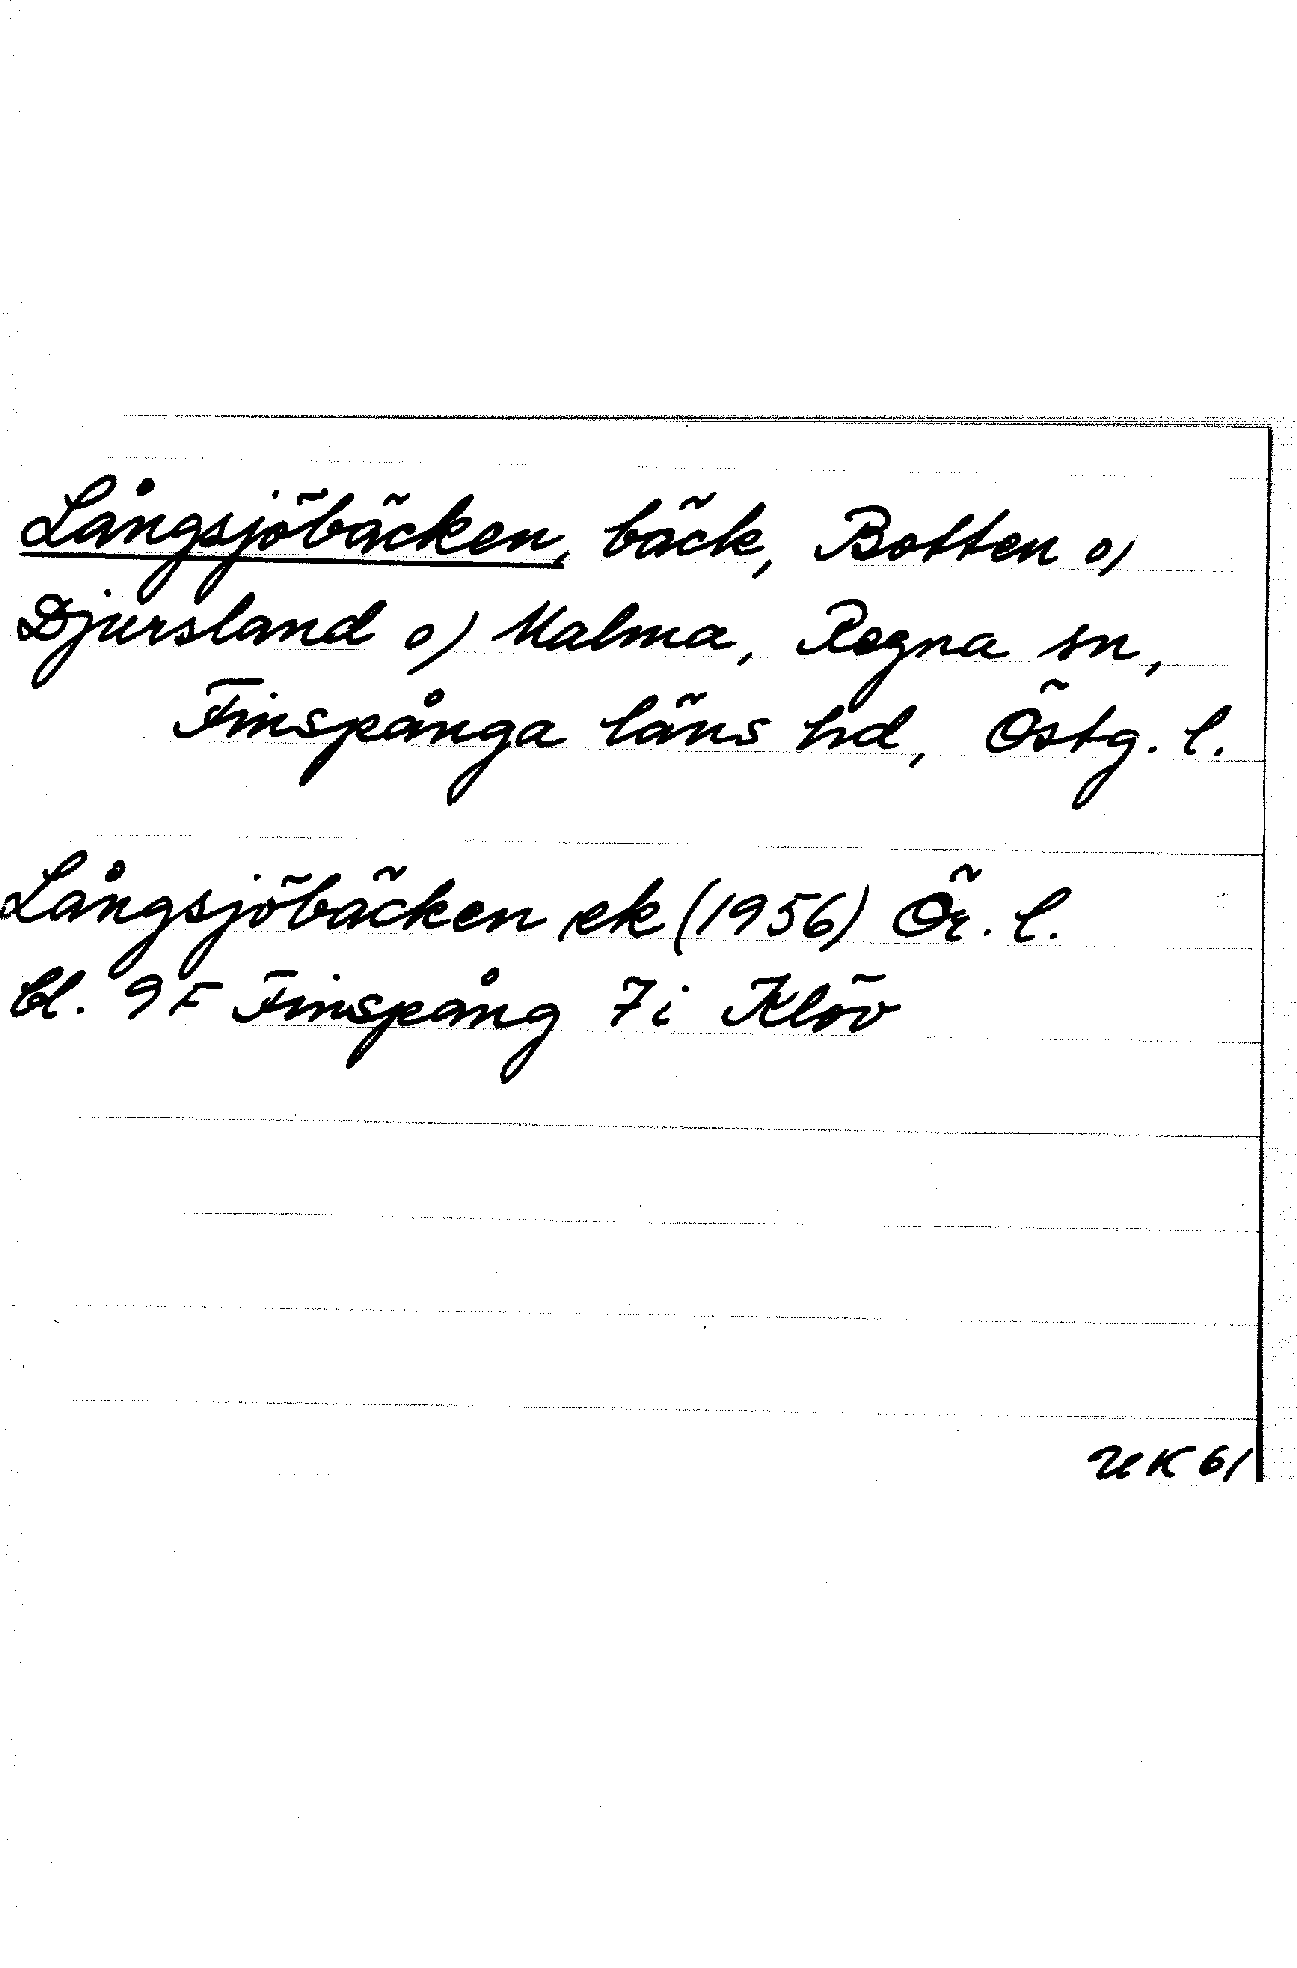 Långsjöbäcken, bäck, Botten o/
Djursland o/ Malma, Regna sn,
Finspånga läns hd, Östg. l.
Långsjöbäcken ek (1956) Ör. l.
bl. 9F Finspång 7i Klöv
UK 61